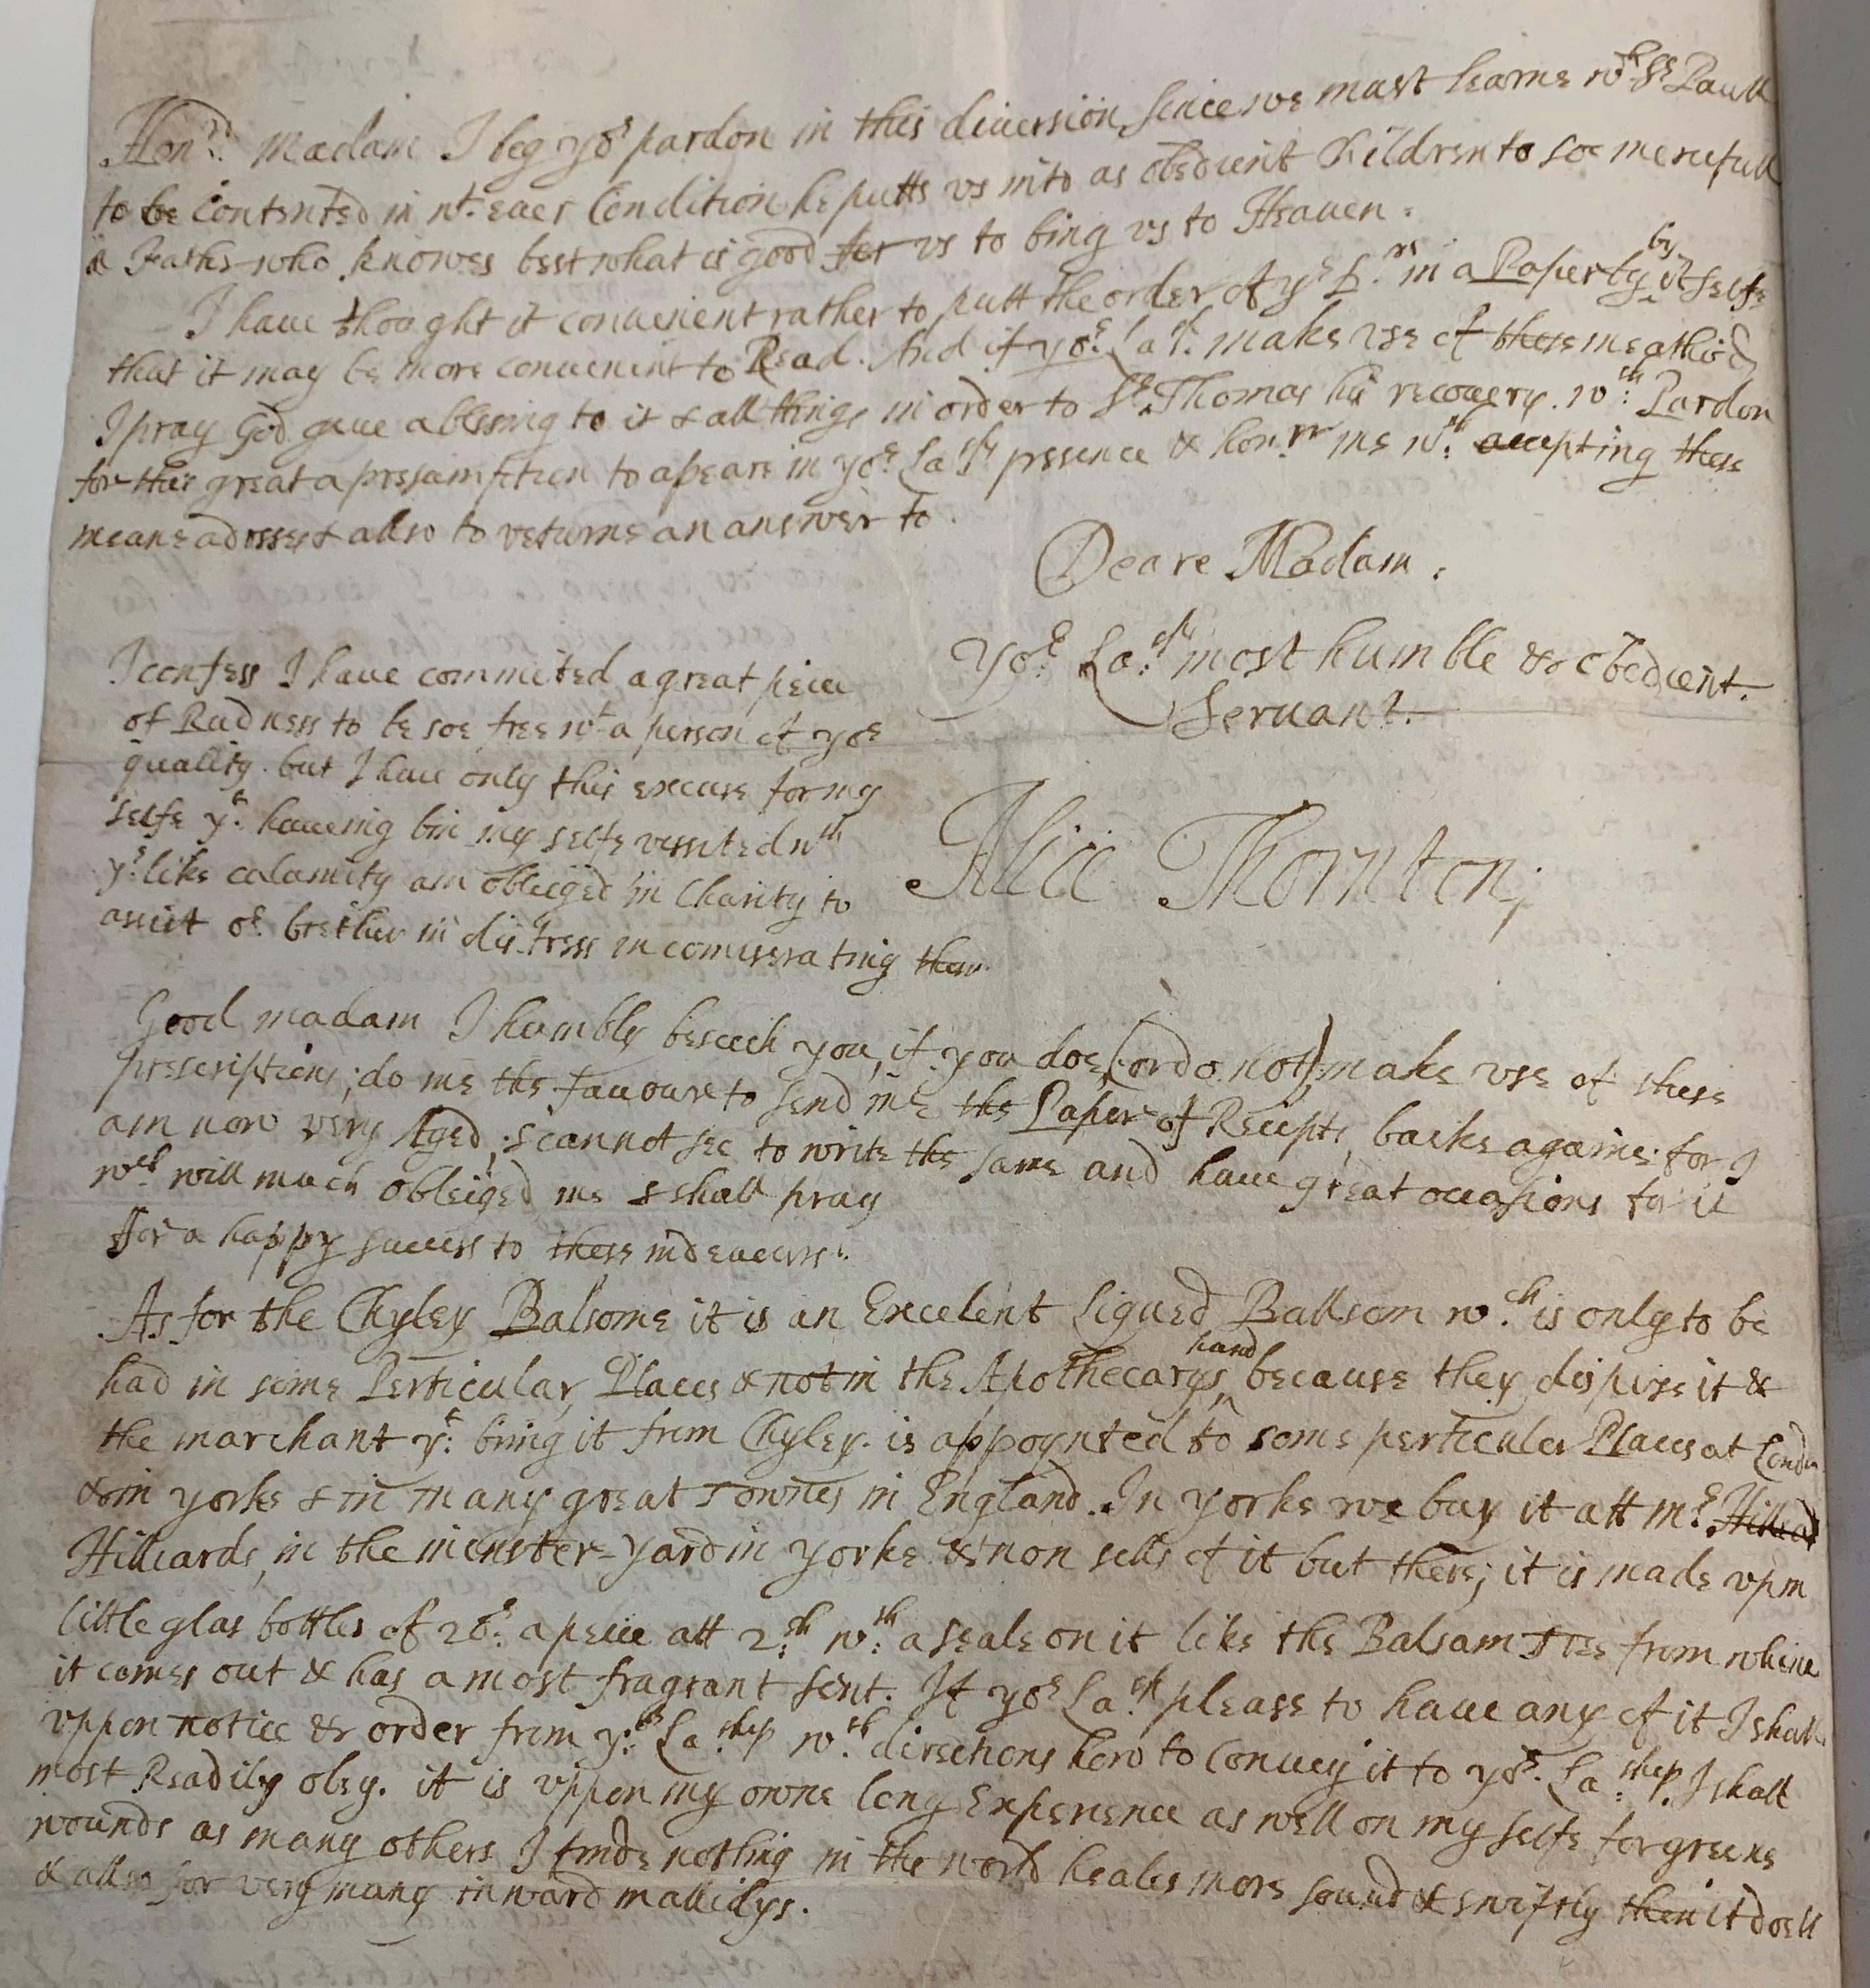 Hon:rd Madam I beg yor pardon in this diuersion, Since we must learne wth St Paull
to be Contented in wt. euer Condition he putts vs into as obedient Children to soe mercifull
a Father who knowes best what is good for vs to bing vs to Heauen.
I haue thought it conuenient rather to putt the order of ye Drs in a Paper by it selfe
that it may be more conuenint to Read. And if yor: Lasp: make vse of these meathod,
I pray God giue a blessing to it & all things in order to Sr. Thomas his recouery. wth: Pardon
for this great a pressumption to apeare in yor: Lasps presence & honrr me wth: accepting these
meane adresses & allso to returne an answer to.
Deare Madam.
Yor: La:sps most humble & obedient.
Seruant.
I confess I haue commited a great peice
of Rudness to be soe free wt a person of yor
quallity. but I haue only this excuse for my
selfe yt. haueing bin my selfe vissited wth
ye like calamity am obleiged in Charity to
assist or. brether in distress in comiserating them.
Alice Thornton;
Good madam I humbly beseech you, if you doe, (or do not) make vse of these
prescriptions; do me the fauoure to send me the Paper of Receipts, backe againe. for I
am now very Aged, & cannot see to write the same and haue great occasions for it
wch will much obleiged me & shall pray
for a happy success to these indeauours.
As for the Chyley Balsome it is an Excelent Liqued Ballsom w:ch is only to be
had in some Perticular, Places & not in the Apothecarys hand because they dispise it &
the marchant yt: bring it from Chyley. is appoynted to some perticuler Places at London
& in yorke & in many great Townes in England. In yorke we buy it att Mr. Hilliard
Hilliards, in the minster-yard in yorke. & non sells of it but there; it is made vp in
little glas bottles of 2 or: a peice att 2:sh w:th a seale on it like the Balsam Tree from whence
it comes out & has a most fragrant sent. If yor La:sp please to haue any of it I shall
vppon notice & order from yor: La:ship w:th directions how to Conuey it to yor. La:ship. I shall
most Readily obey. it is vppon my owne long Experience as well on my selfe for greene
wounds as many others I finde nothing in the world heales more sound & swiftly then it doeth
& allso for very many inward mallidys.